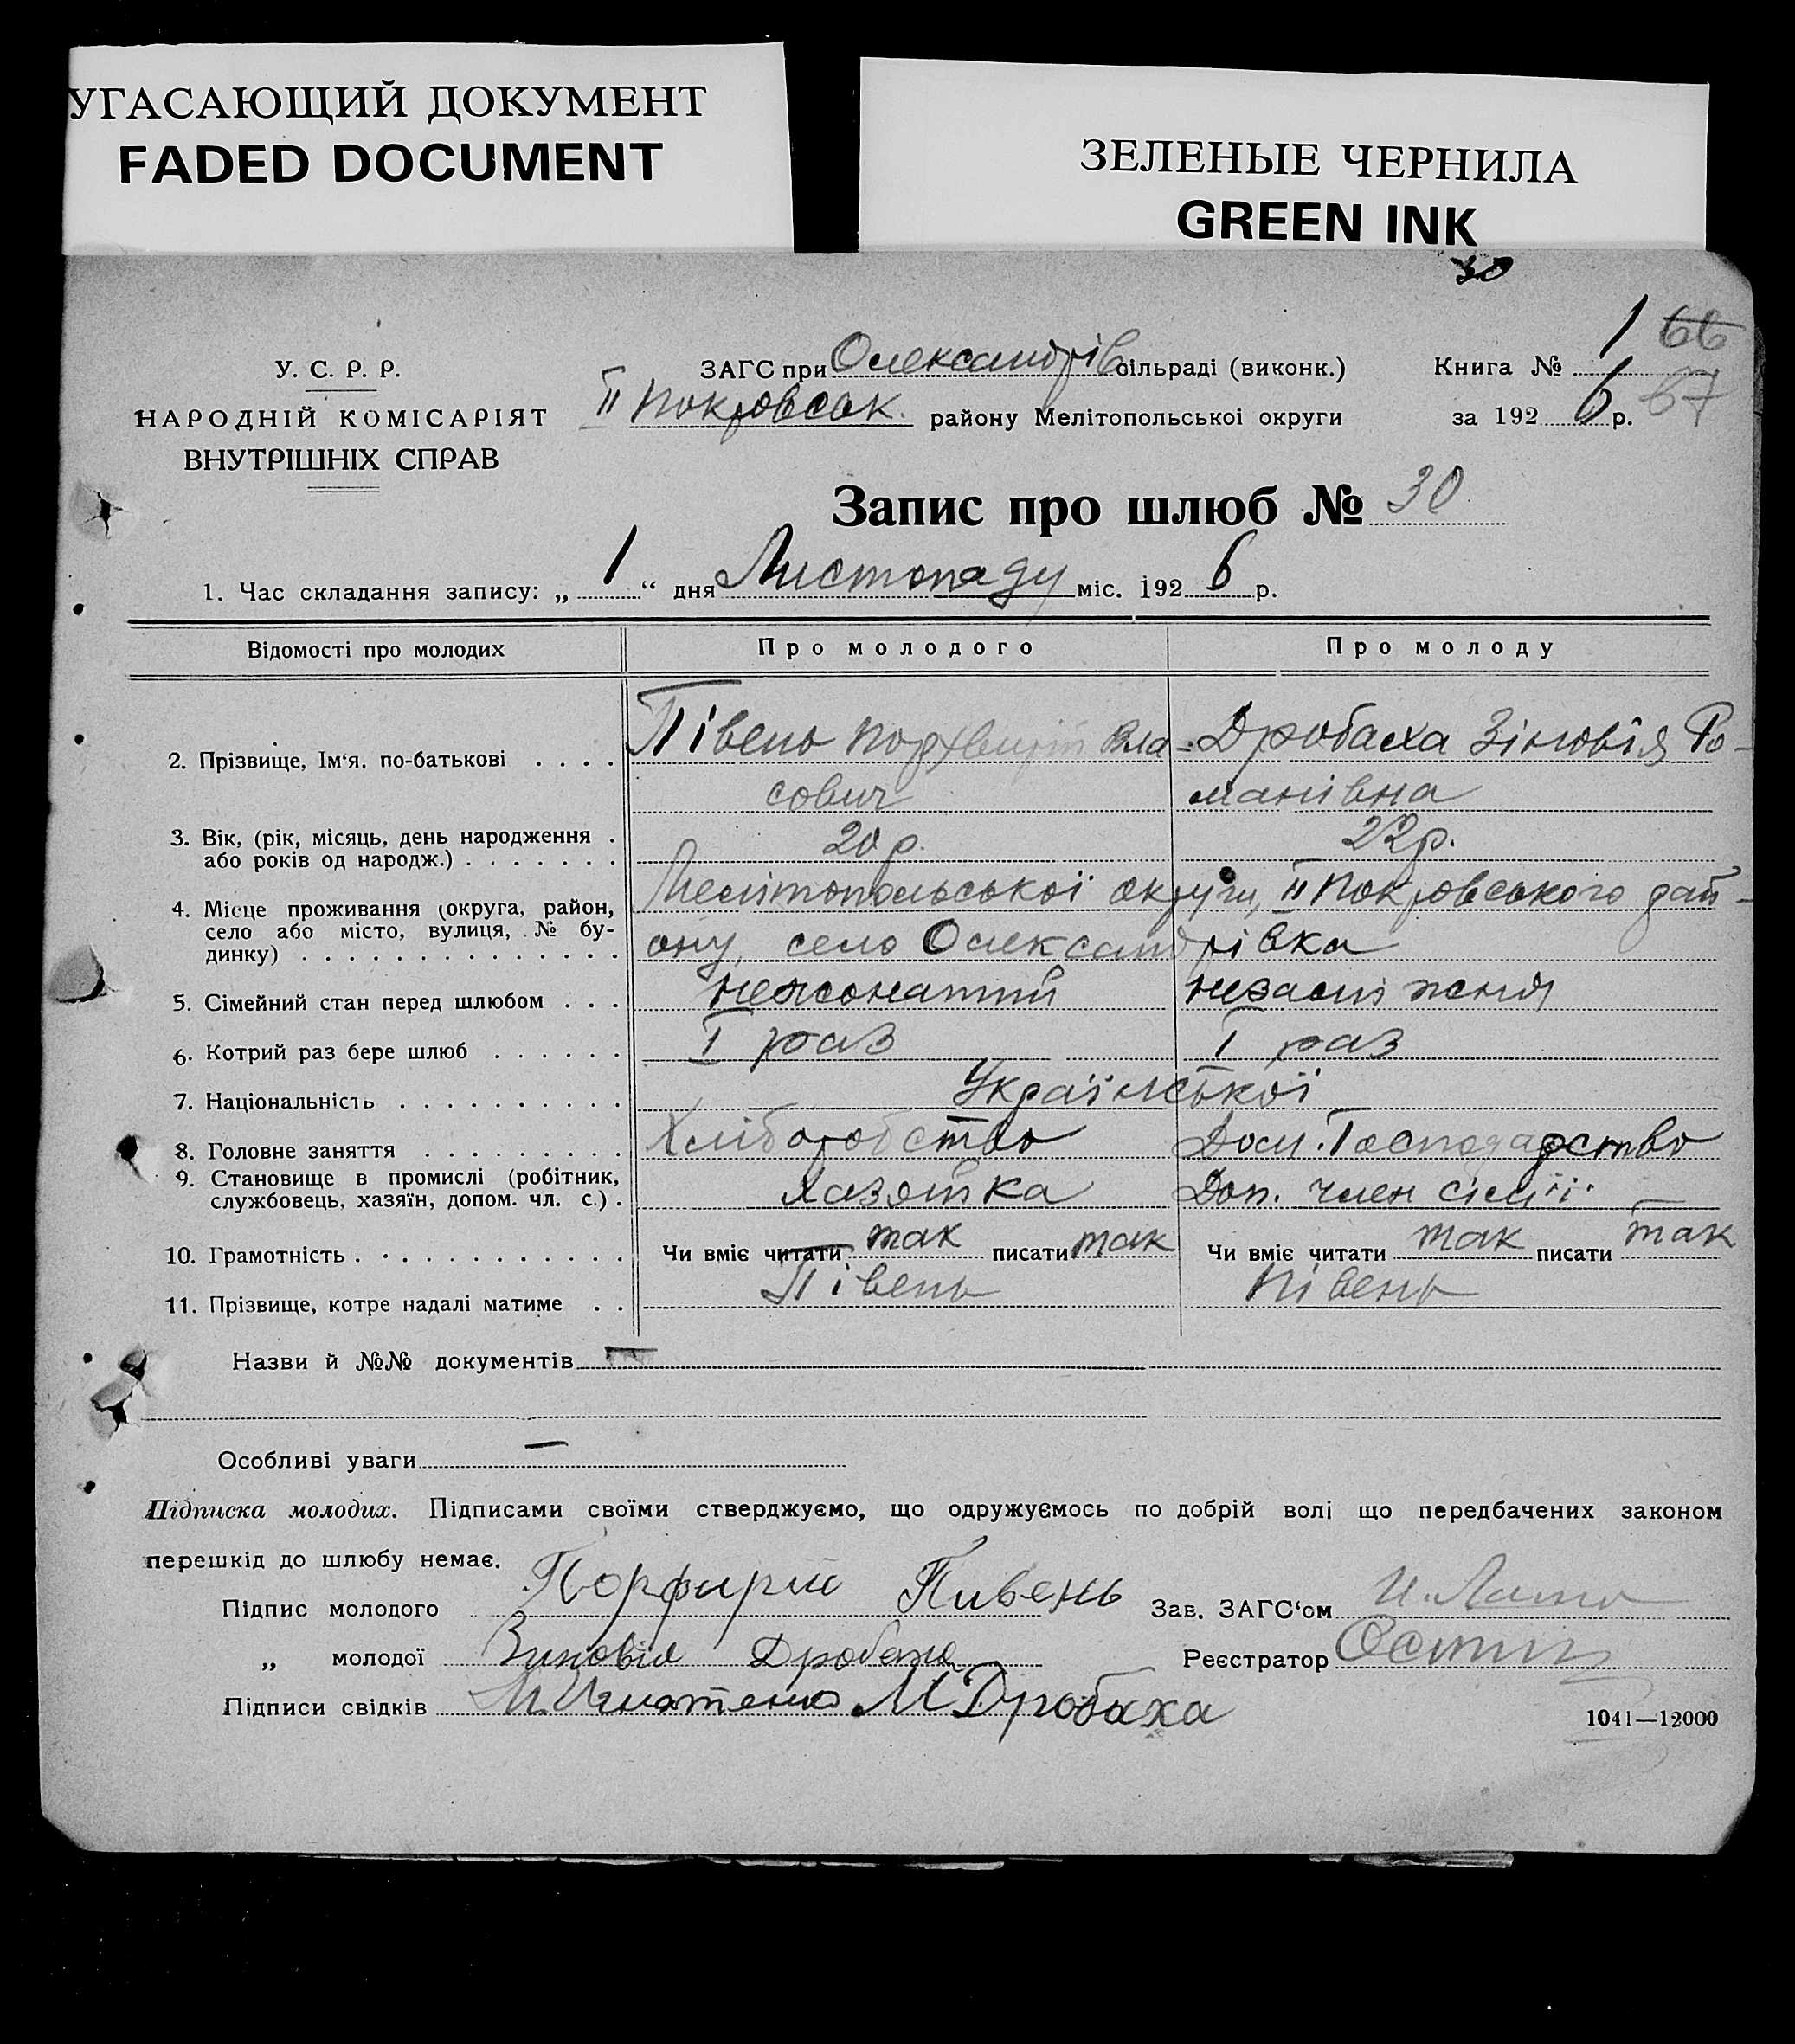 УГАСАЮЩИЙ ДОКУМЕНТ
FADED DOCUMENT
ЗЕЛЕНЫЕ ЧЕРНИЛА
GREEN INK
30
У. С. Р. Р.
НАРОДНІЙ КОМІСАРІЯТ
ВНУТРІШНІХ СПРАВ
ЗАГС при Олександрів сільраді (виконк.)
II Покровськ. району Мелітопольської округи
Книга № 1 66
за 1926 р. 67
Запис про шлюб № 30
1. Час складання запису: „ 1 “ дня Листопаду міс. 1926 р.
Відомості про молодих Про молодого Про молоду
2. Прізвище, Ім'я, по-батькові . . . . Півень Вла- Дробаха Зіновія Ро-
сович манівна
3. Вік, (рік, місяць, день народження . 20 р. 22 р.
або років од народж.) . . . . . . .
4. Місце проживання (округа, район, Мелітопольської округи, II Покровського рай-
село або місто, вулиця, № бу- ону, село Олександрівка
динку) . . . . . . . . . . . . . .
5. Сімейний стан перед шлюбом . . . нежонатий
6. Котрий раз бере шлюб . . . . . . I раз I раз
7. Національність . . . . . . . . . . Української
8. Головне заняття . . . . . . . . . Хліборобство Дом. Господарство
9. Становище в промислі (робітник,
службовець, хазяїн, допом. чл. с.) . Доп. член сімї
10. Грамотність . . . . . . . . . . . Чи вміє читати так писати так Чи вміє читати так писати так
11. Прізвище, котре надалі матиме . . Півень Півень
Назви й №№ документів —
Особливі уваги —
Підписка молодих. Підписами своїми стверджуємо, що одружуємось по добрій волі що передбачених законом
перешкід до шлюбу немає.
Підпис молодого Порфирий Пивень Зав. ЗАГС‘ом
„ молодої Зиновия Дробаха Реєстратор
Підписи свідків М Дробаха
1041—12000